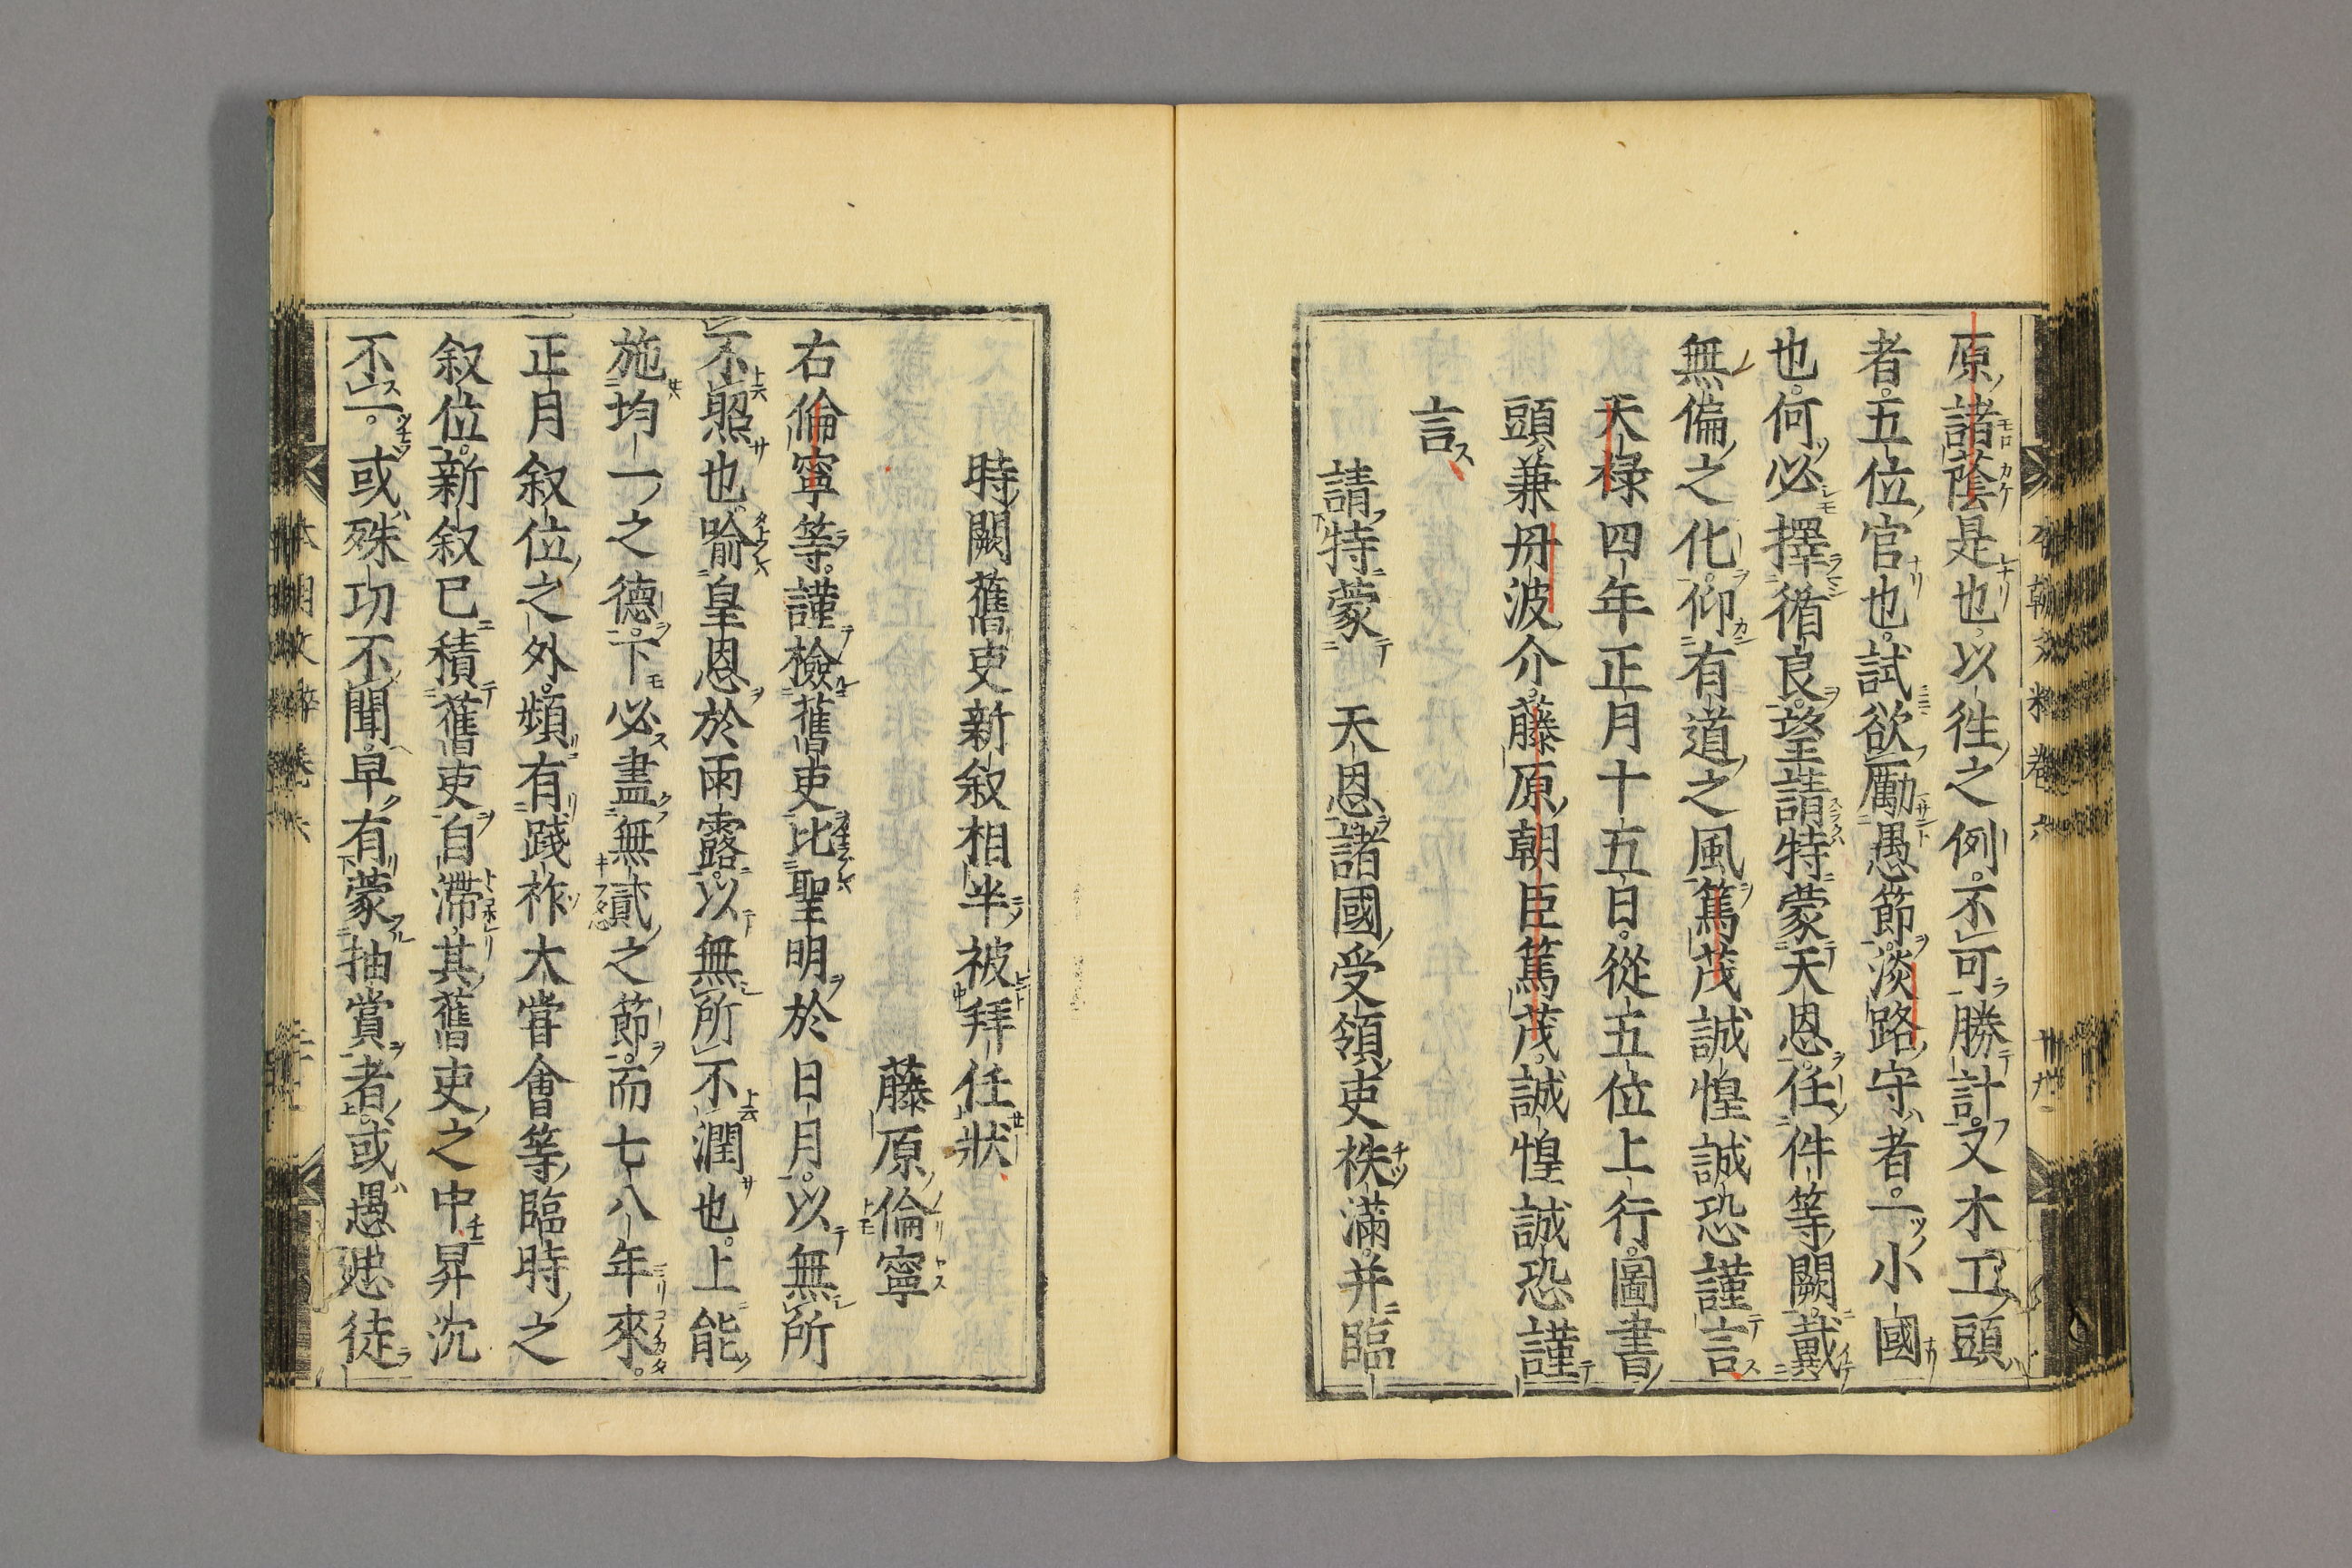 原諸蔭是也以徃之例。不可勝計。又木工頭
者。五位官也。試欲勵愚節。淡路守者。一小國
也。何必擇循良。望請特蒙天恩。任件等闕。戴
無偏之化。仰有道之風。篤茂誠惶誠恐謹言
天禄四年正月十五日。從五位上行。圖書
頭。兼丹波介。藤原朝臣篤茂。誠惶誠恐謹
言
請特蒙　天恩。諸國受領吏秩滿。并臨
時闕舊吏新叙相半被拜任狀
藤原倫寧
右倫寧等。謹檢舊吏比聖明於日月。以無所
不照也。喩皇恩於雨露。以無所不潤也。上能
施均一之德。下必盡無貳之節。而七八年來。
正月叙位之外。頻有踐祚大甞會等臨時之
叙位。新叙已積。舊吏自滯。其舊吏之中。昇沉
不一。或殊功不聞。早有蒙抽賞者。或愚忠徒